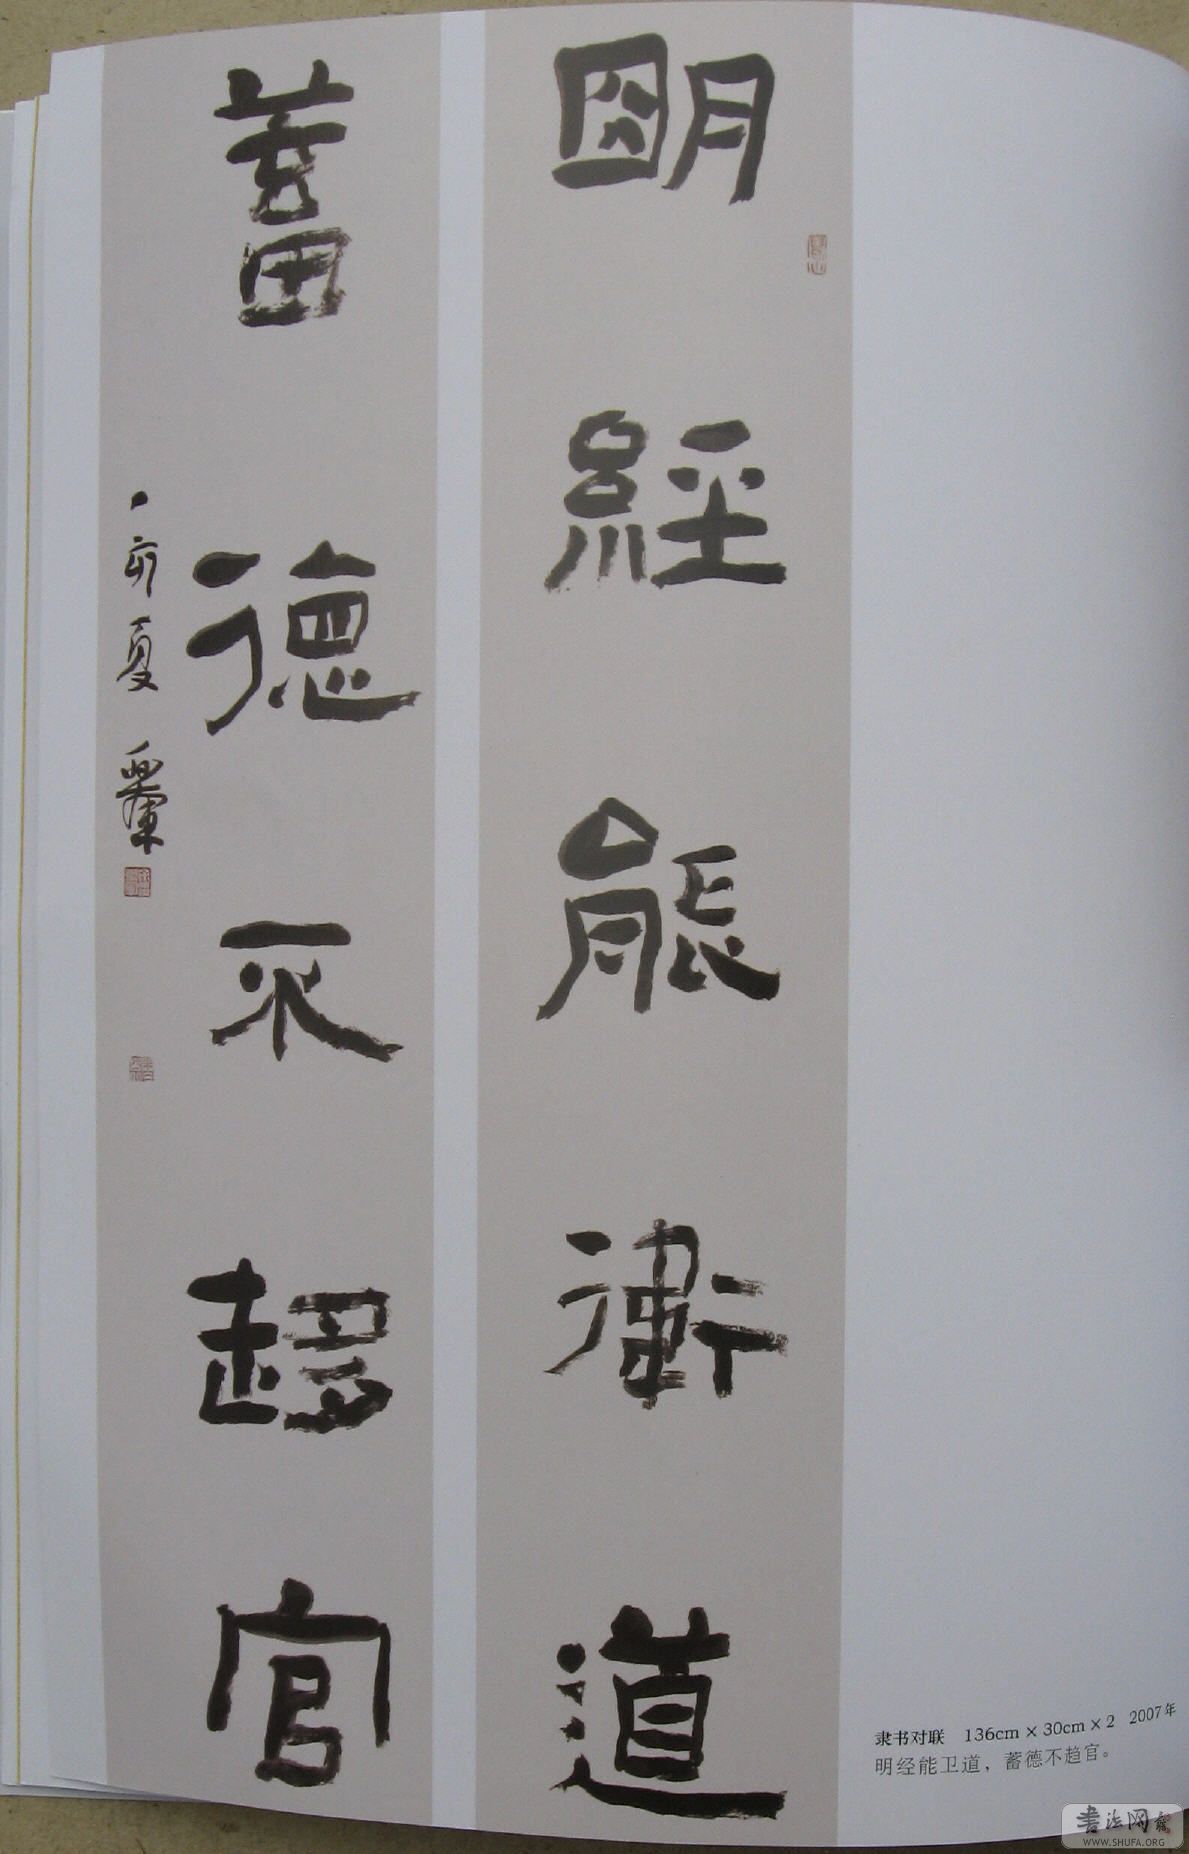 明經能衛道
蓄德不趨官
丁亥夏
隶书对联 136cm×30cm×2 2007年
明经能卫道，蓄德不趋官。
书法网
WWW.SHUFA.ORG